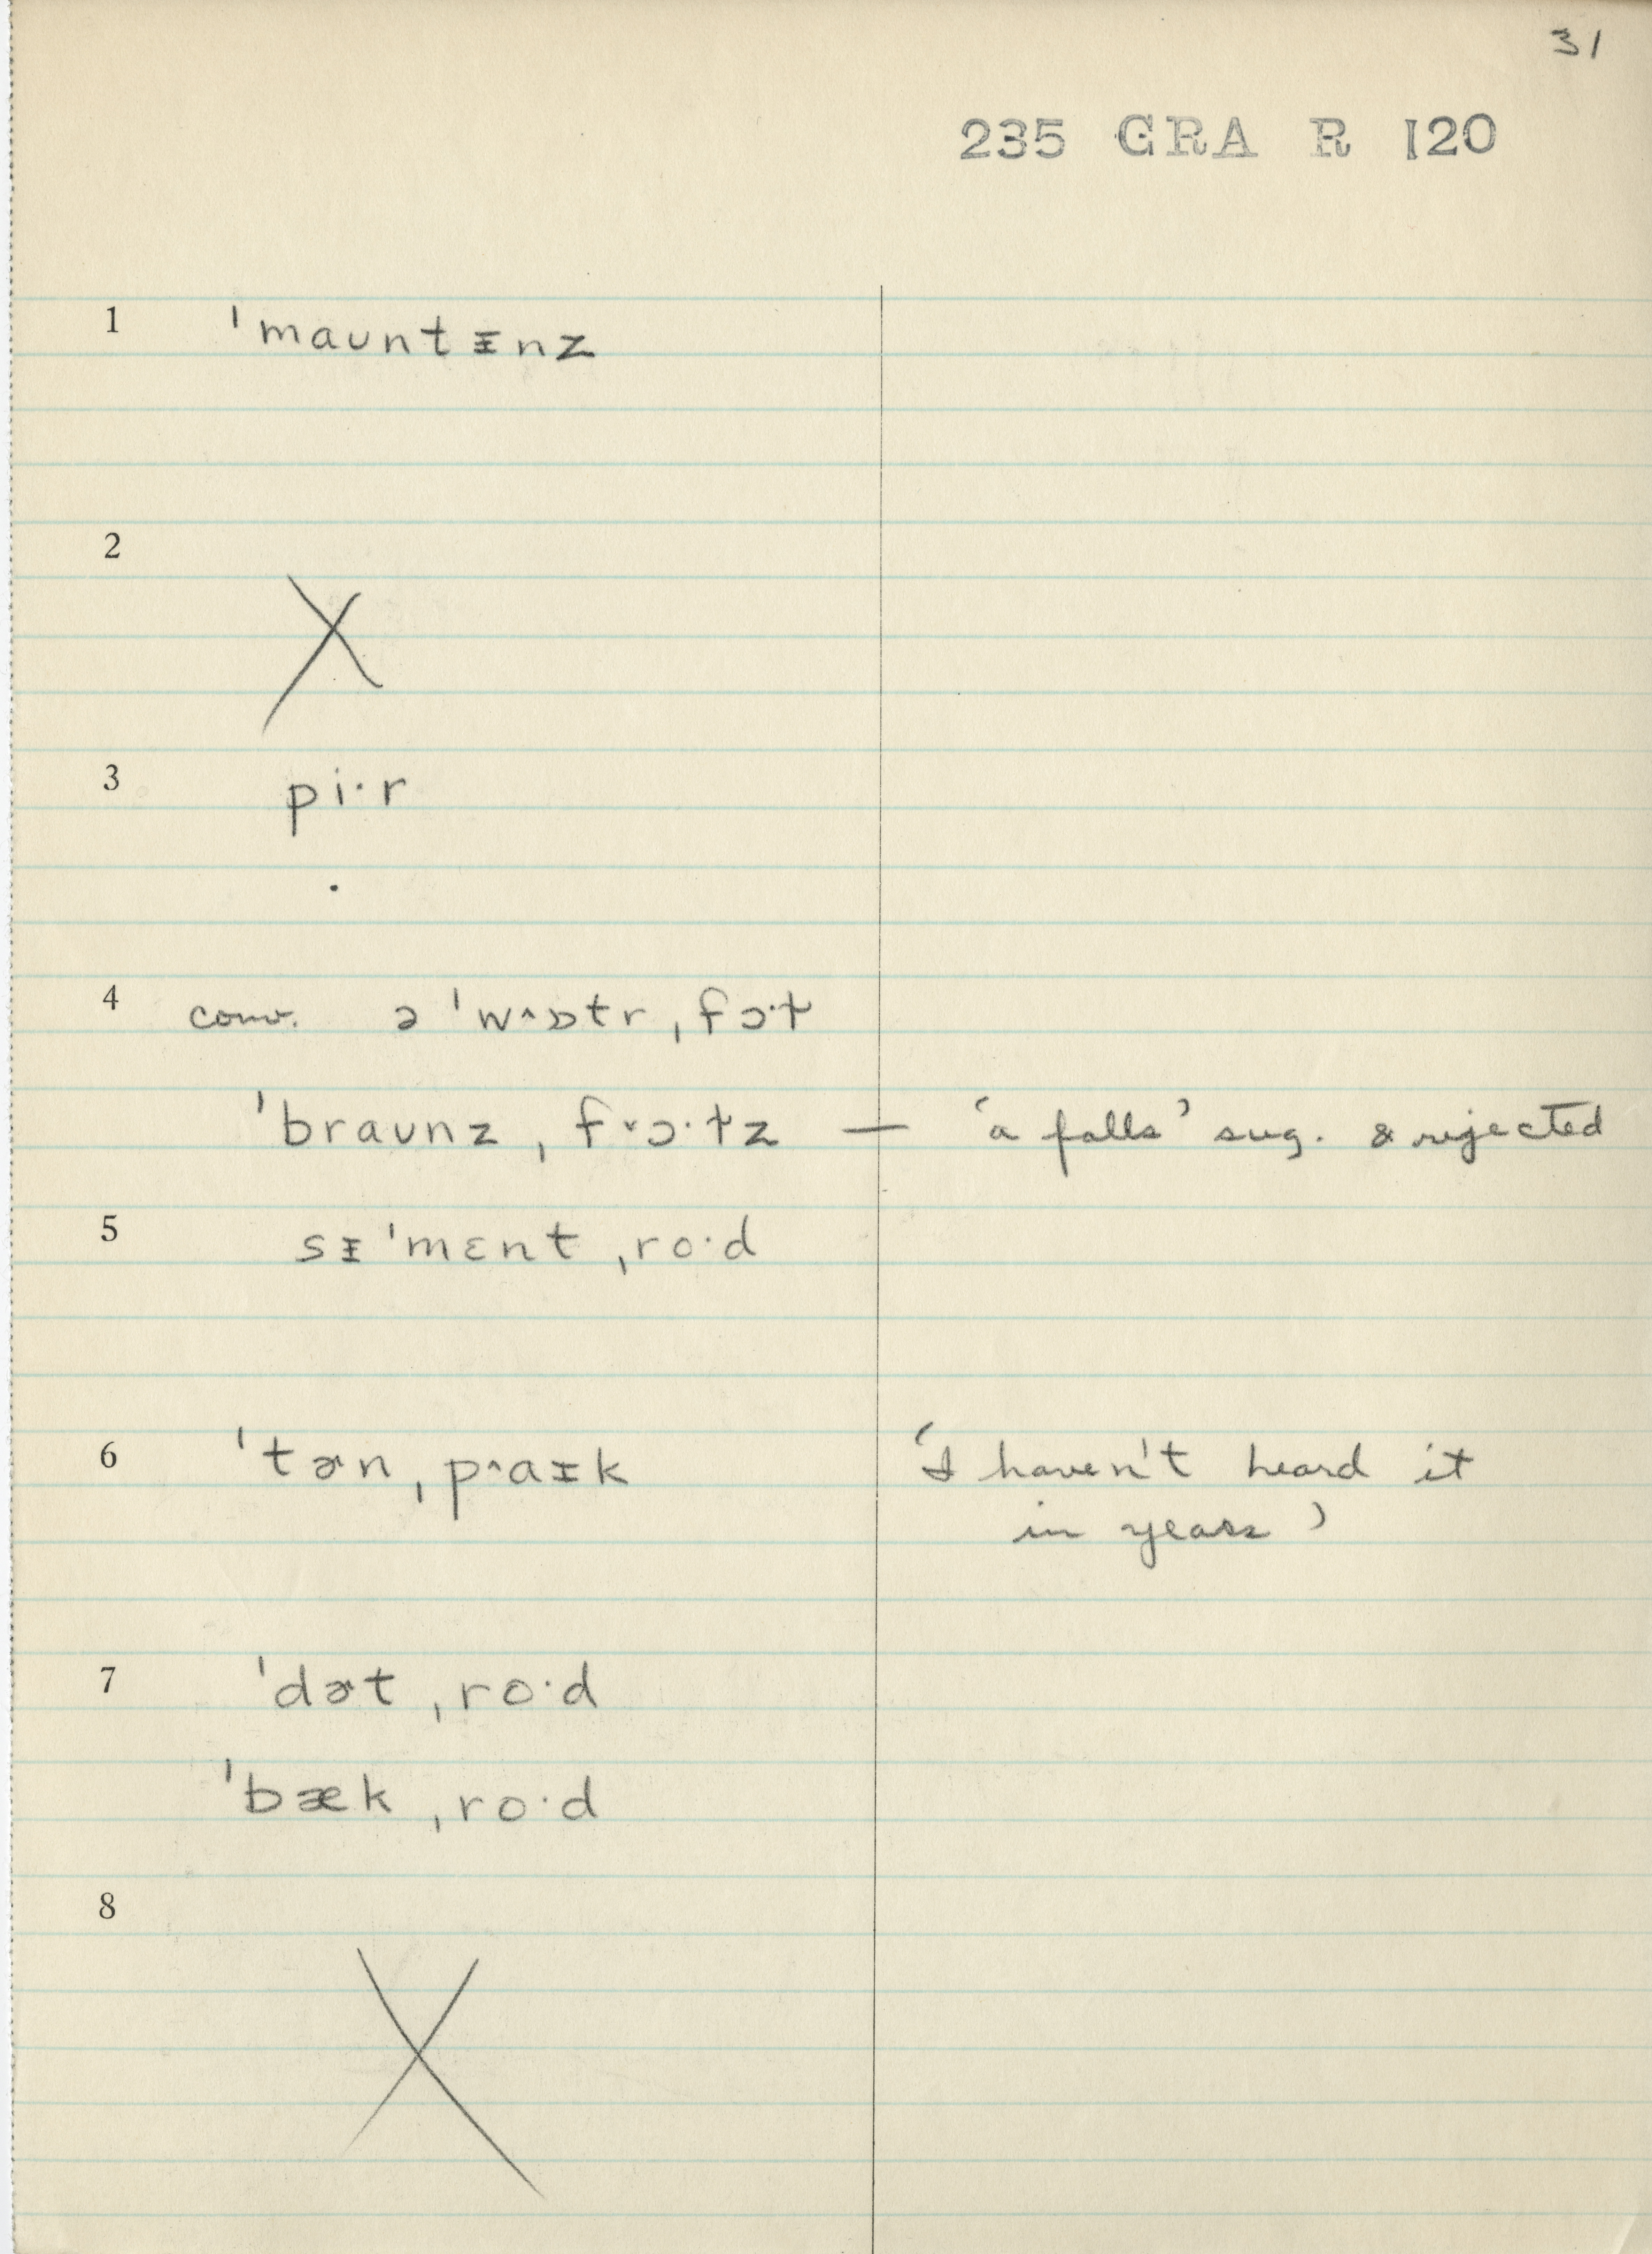 31
235 GRA R 120
1 ˈmaʊntᵻnz
2 X
3 pi·r
4 conv. ə ˈw^ɒtr ˌfɔ·ɫ
ˈbraʊnz ˌfˇɔ·ɫz — ‘a falls’ sug. & rejected
5 sᵻˈmɛnt ˌro·d
6 ˈtɚn ˌp^aᵻk ‘I haven't heard it
in years’
7 ˈdɚt ˌro·d
ˈbæk ˌro·d
8 X